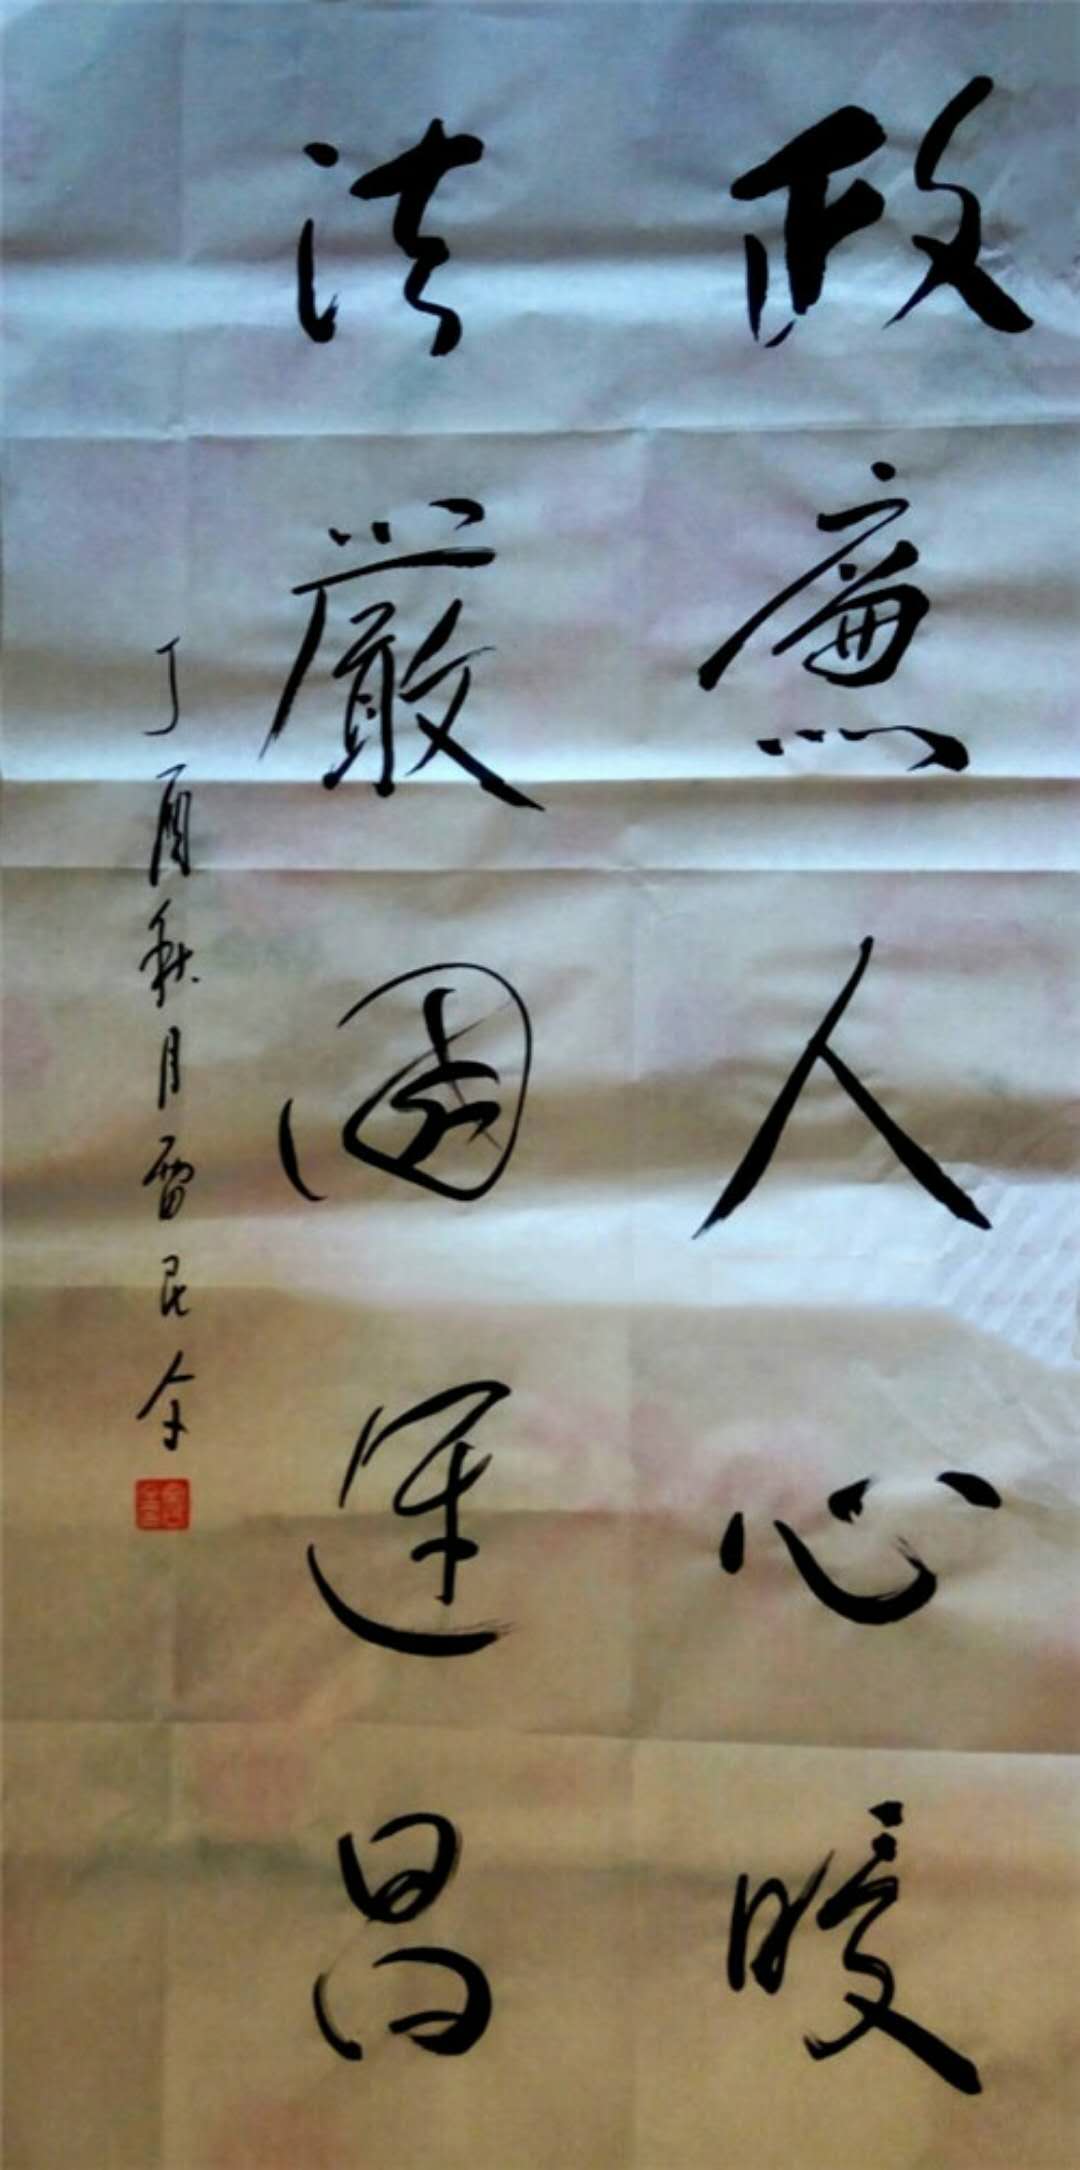 政廉人心暖
法嚴国運昌
丁酉秋月雷民金